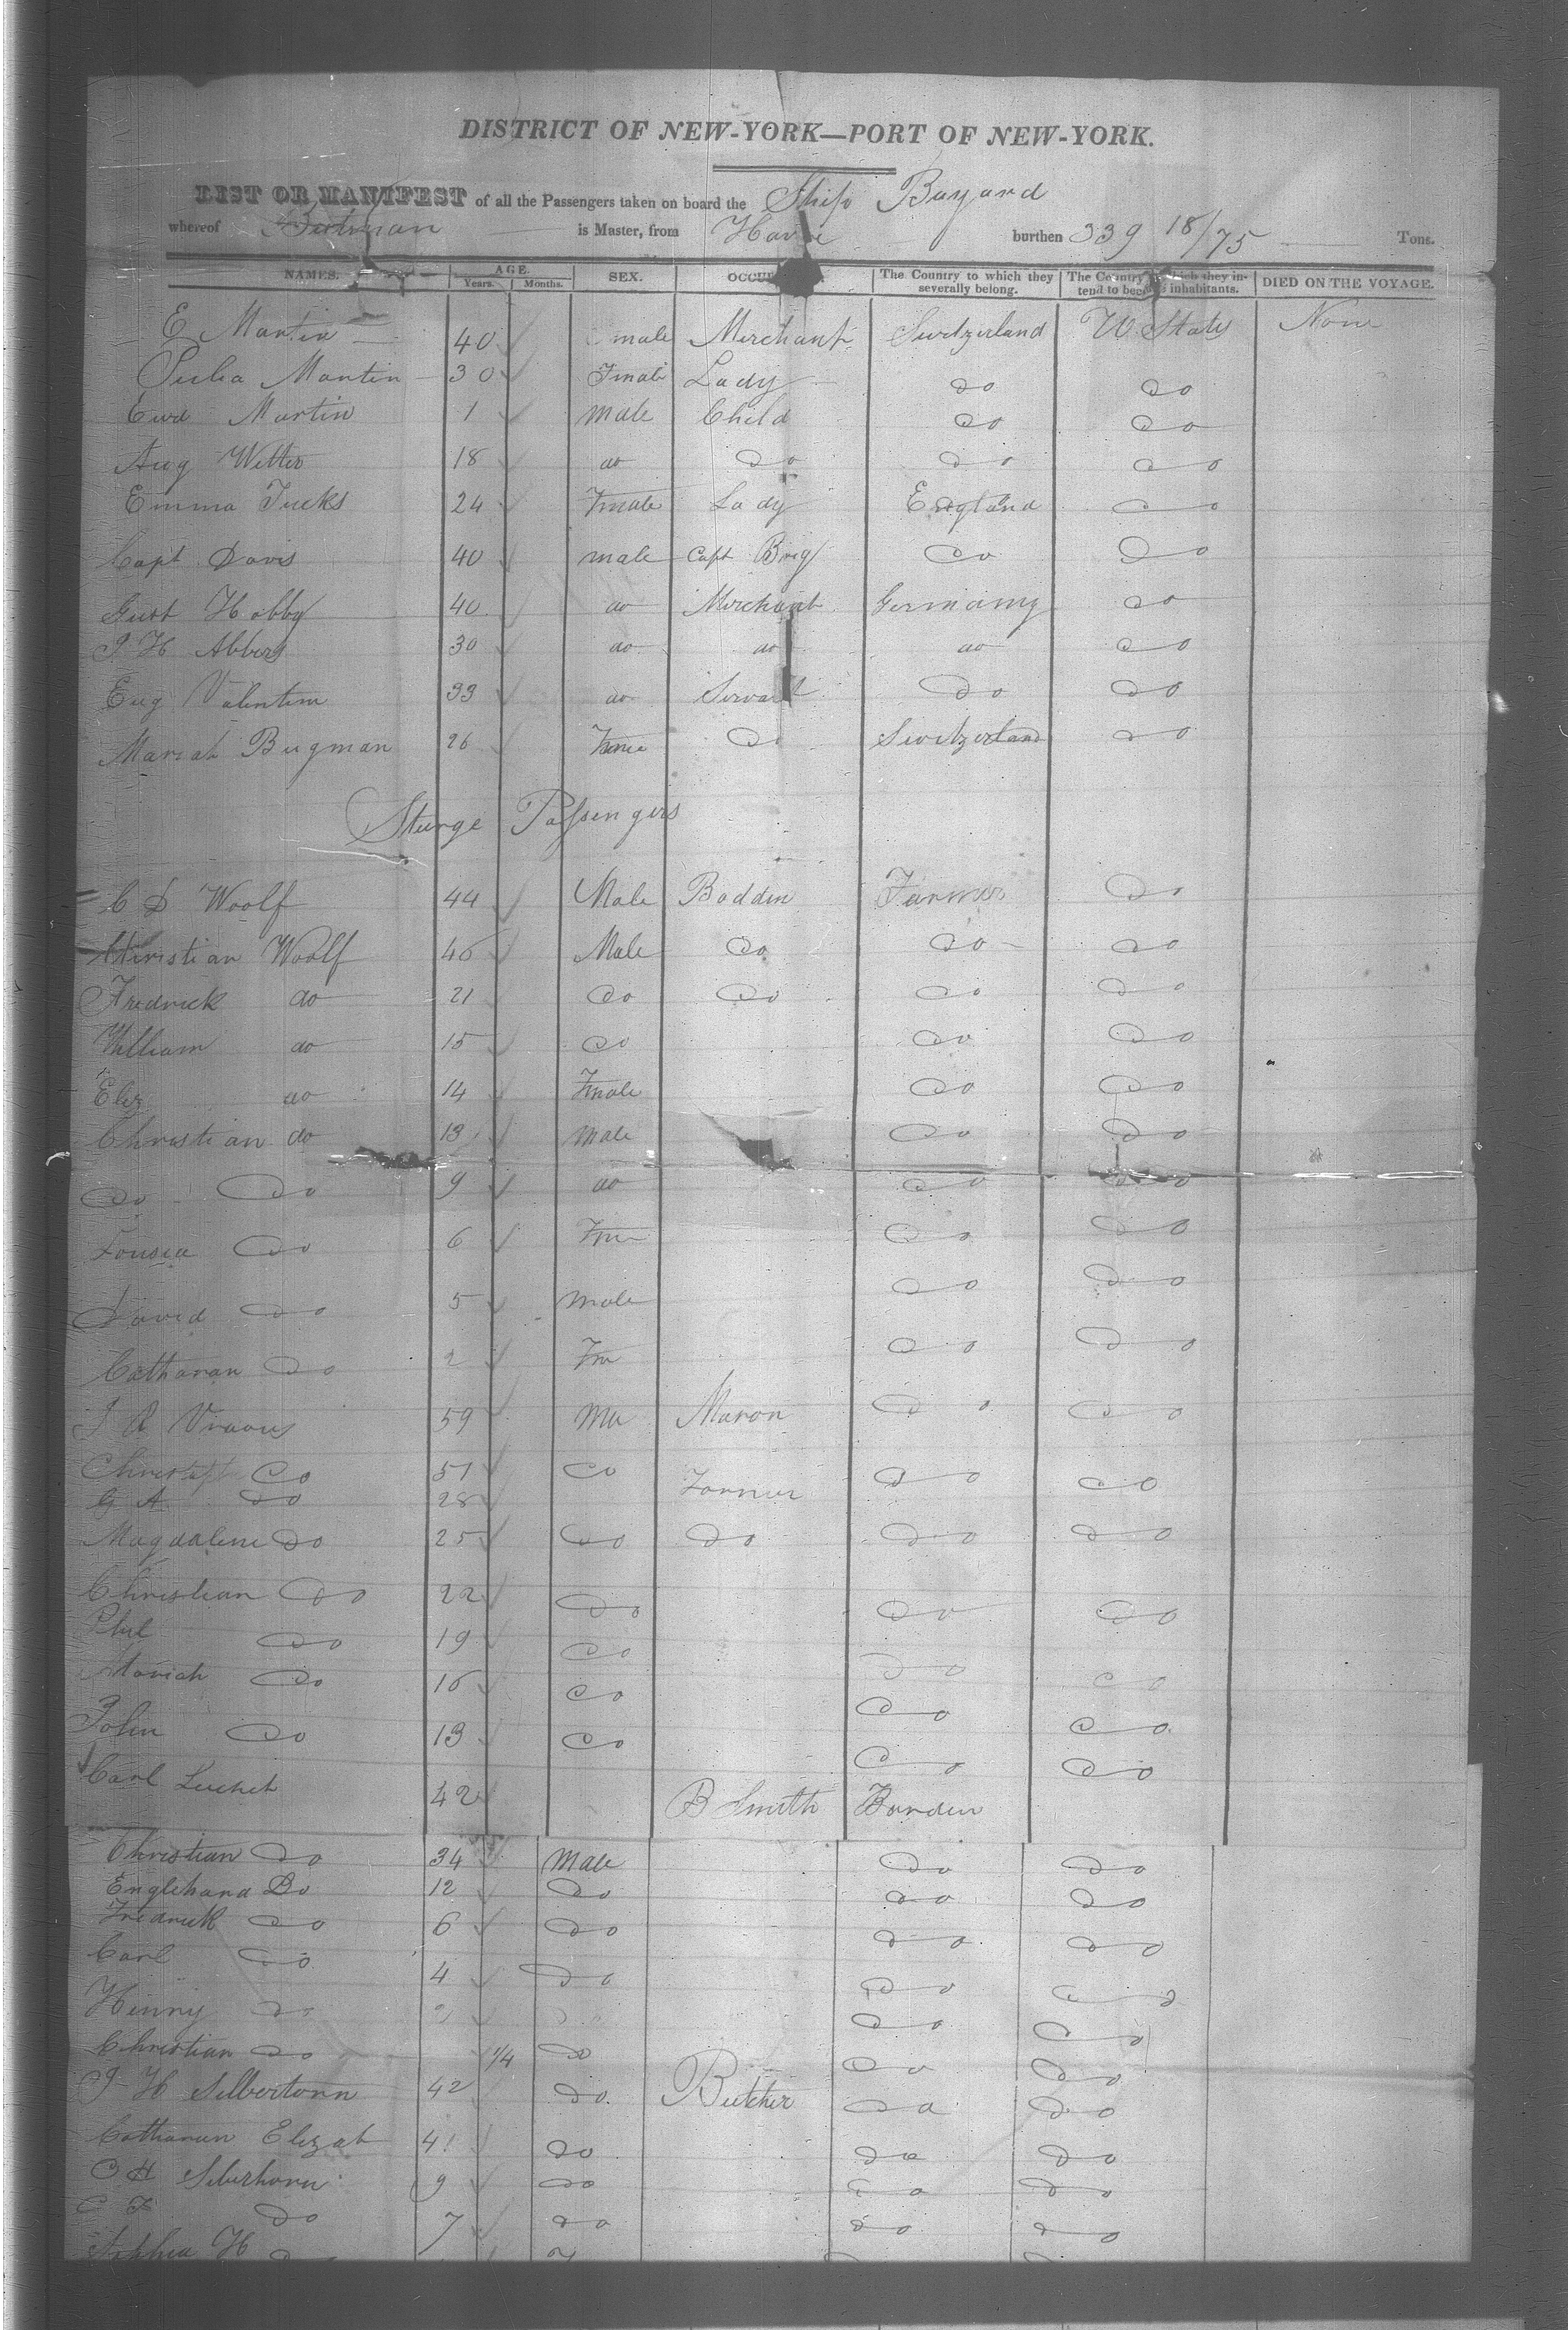 DISTRICT OF NEW-YORK—PORT OF NEW-YORK.
LIST OR MANIFEST of all the Passengers taken on board the Ship Bayard
whereof is Master, from Havre burthen 339 18/75 Tons.
NAMES. AGE. Years. Months. SEX. OCCU The Country to which they severally belong. The Country which they intend to become inhabitants. DIED ON THE VOYAGE.
E Martin 40 male Merchant Switzerland U. States None
Martin 30 Fmale Lady do do
Ewd Martin 1 male Child do do
Aug Witter 18 do do do do
Emma Tucks 24 Fmale Lady England do
Capt Davis 40 male Capt Brig do do
Gust Hobby 40 do Merchant Germany do
J H Abbers 30 do do do do
Eug Valentim 33 do Servant do do
Mariah Bugman 26 Fme do Switzerland do
Sturge Passengers
C D Woolf 44 Male Badden Farmer do
Christian Woolf 46 Male do do do
Fredrick do 21 do do do do
William do 15 do do do
Eliz do 14 Fmale do do
Christian do 13 male do do
do do 9 do do do
Lousea do 6 Fm do do
David do 5 male do do
Catharan do 2 Fm do do
J 59 Ma Mason do do
do 51 do Farmer do do
G A do 28
Magdalene do 25 do do do do
Christian do 22 do do do
Phil do 19 do do do
Mariah do 16 do do do
John do 13 do do do
Carl Luchet 42 B Smith Barden
Christian do 34 Male do do
Englehana Do 12 do do do
Fredrick do 6 do do do
Carl do 4 do do do
Hinny do do do
Christian do 1/4 do do do
J H Silbertorn 42 do Butcher do do
Catharun Elizab 41 do do do
C H Silberhorn 9 do do do
C F do 7 do do do
Sophia H do